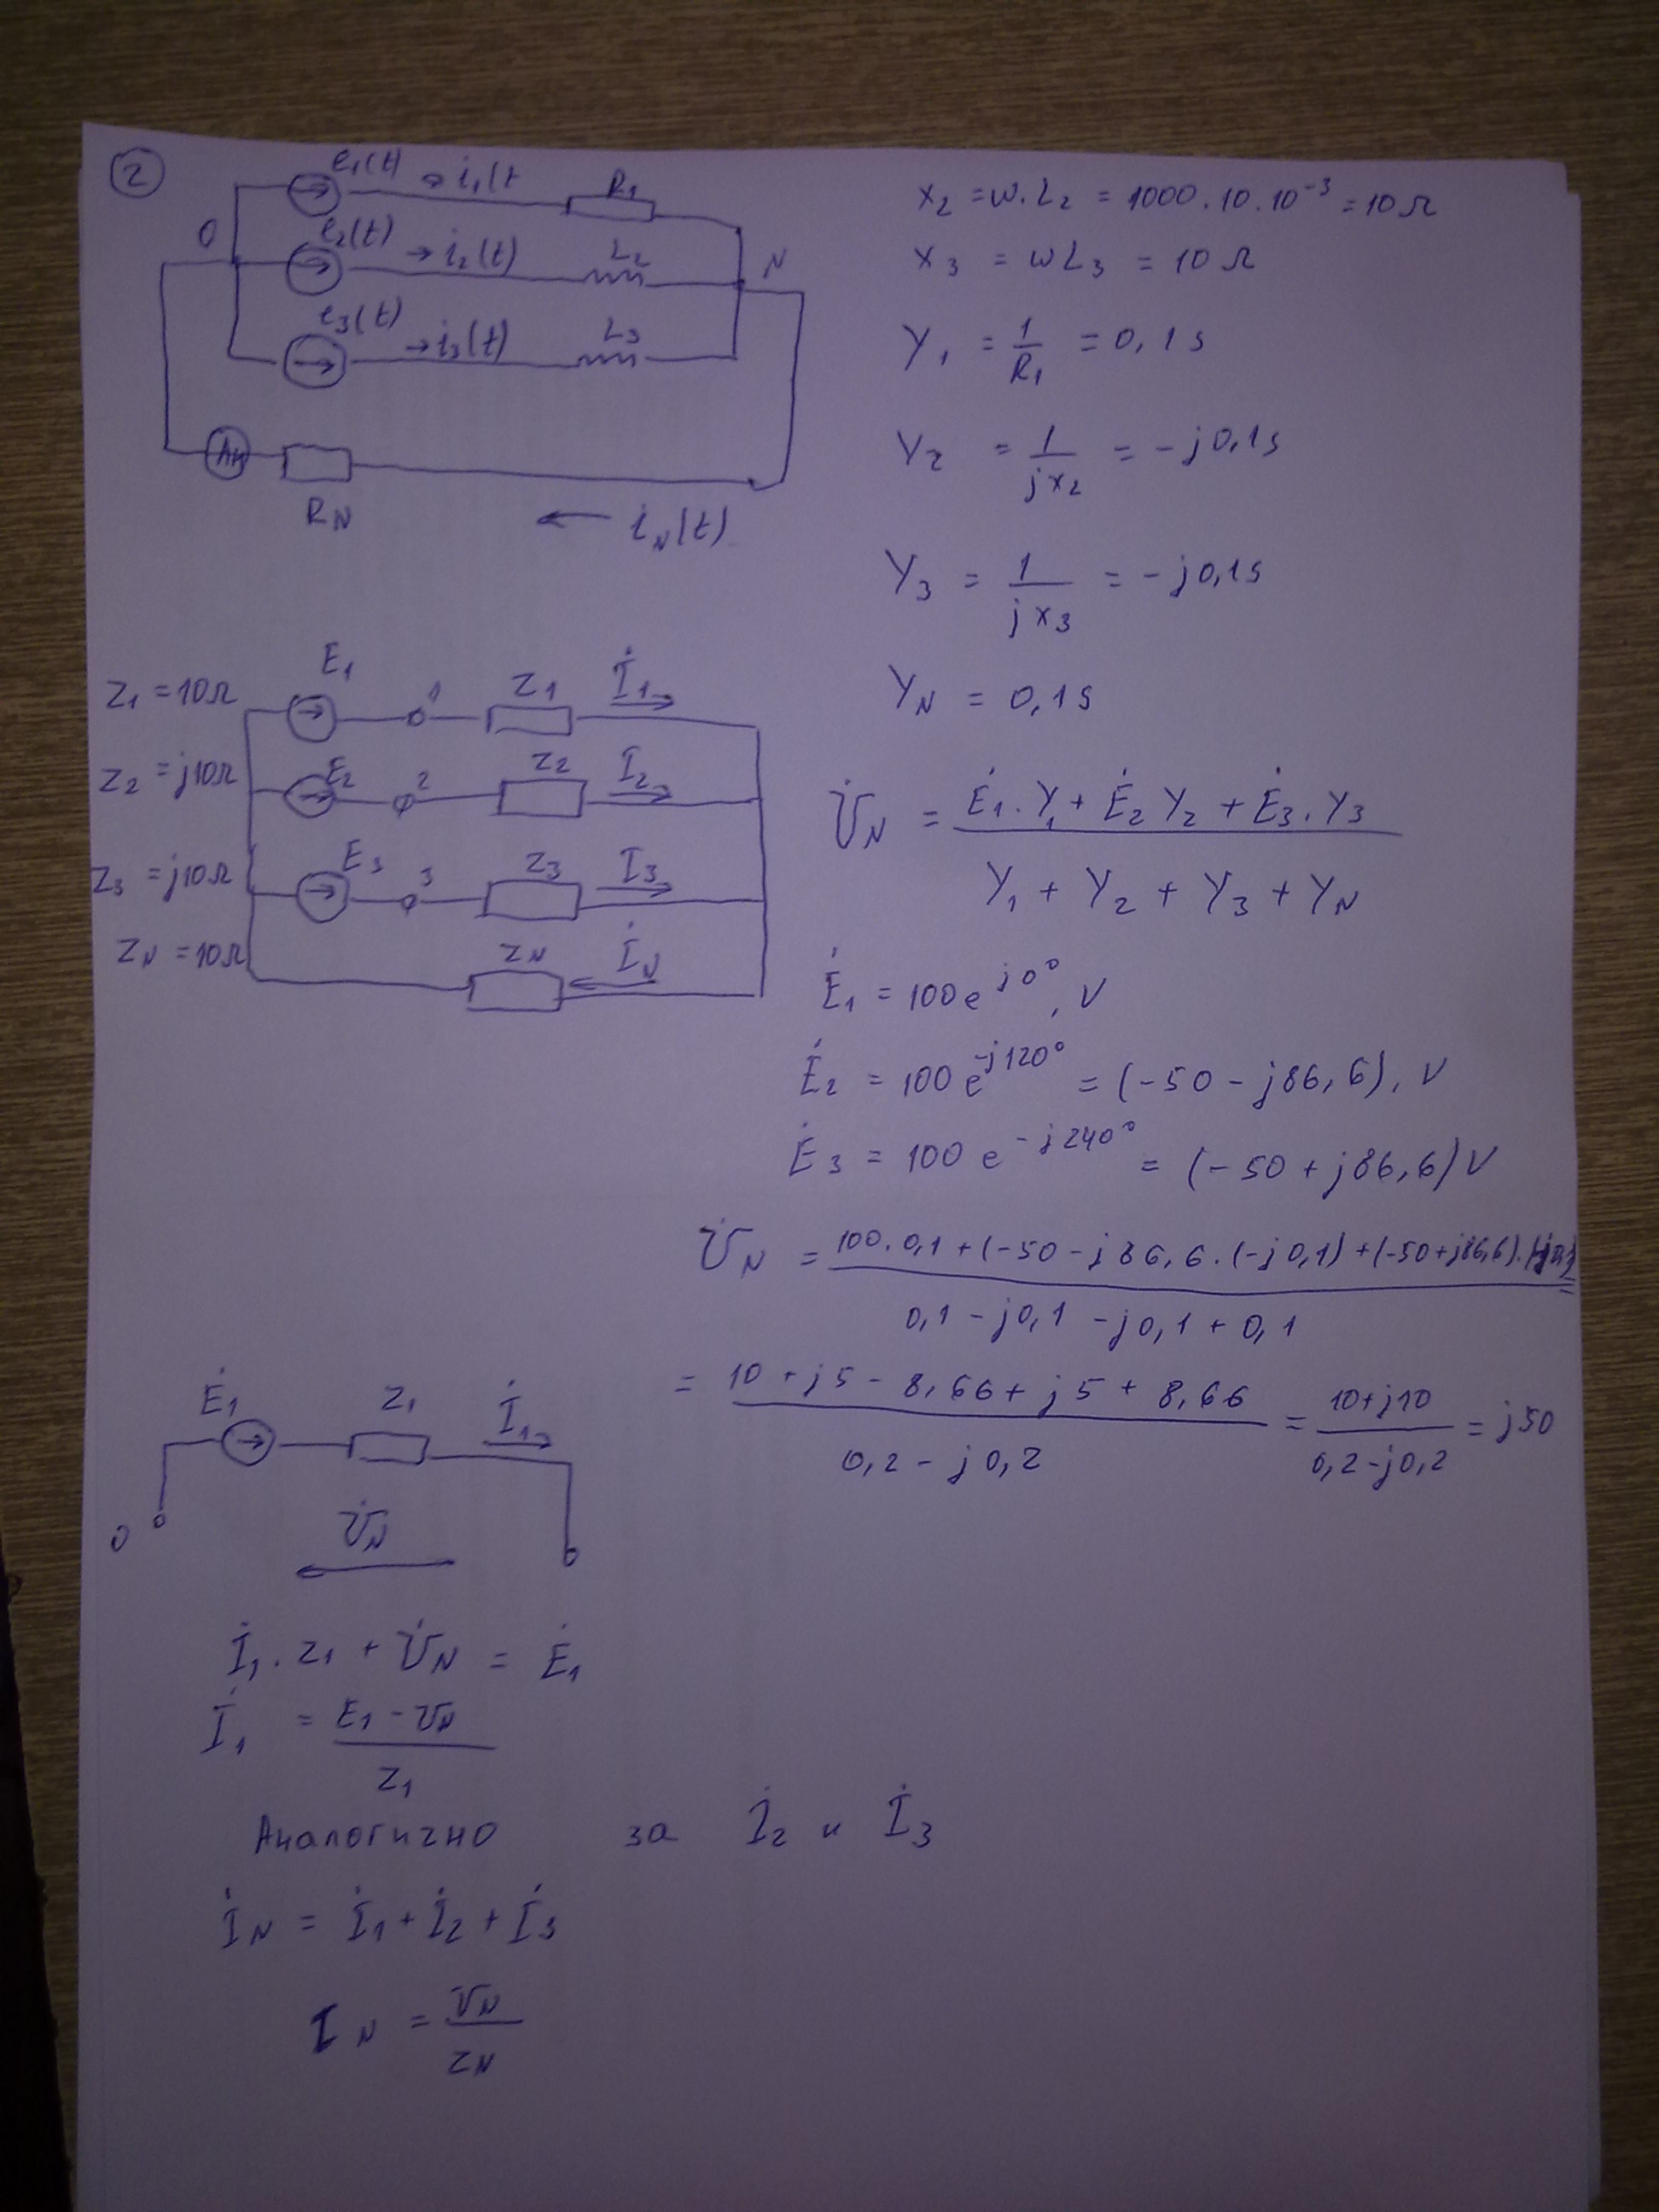 2
e1(t) → i1(t R1
O e2(t) → i2(t) L2 N
e3(t) → i3(t) L3
RN ← iN(t)
x2 = w.L2 = 1000.10.10⁻³ = 10Ω
x3 = wL3 = 10Ω
Y1 = 1/R1 = 0,1s
Y2 = 1/jx2 = -j0,1s
Y3 = 1/jx3 = -j0,1s
YN = 0,1s
E1
Z1 = 10Ω 1 Z1 İ1
Z2 = j10Ω E2 2 Z2 İ2
Z3 = j10Ω E3 3 Z3 İ3
ZN = 10Ω ZN İN
U̇N = (Ė1.Y1 + Ė2Y2 + Ė3.Y3)/(Y1 + Y2 + Y3 + YN)
Ė1 = 100e^j0°, V
Ė2 = 100e^-j120° = (-50 - j86,6), V
Ė3 = 100e^-j240° = (-50 + j86,6)V
U̇N = (100.0,1 + (-50 - j86,6.(-j0,1) + (-50+j86,6).(-j0,1)/(0,1 - j0,1 - j0,1 + 0,1) =
= (10 + j5 - 8,66 + j5 + 8,66)/(0,2 - j0,2) = (10+j10)/(0,2-j0,2) = j50
Ė1 Z1 İ1
O U̇N
İ1.Z1 + U̇N = Ė1
İ1 = (E1 - UN)/Z1
Аналогично за İ2 и İ3
İN = İ1 + İ2 + İ3
IN = UN/ZN